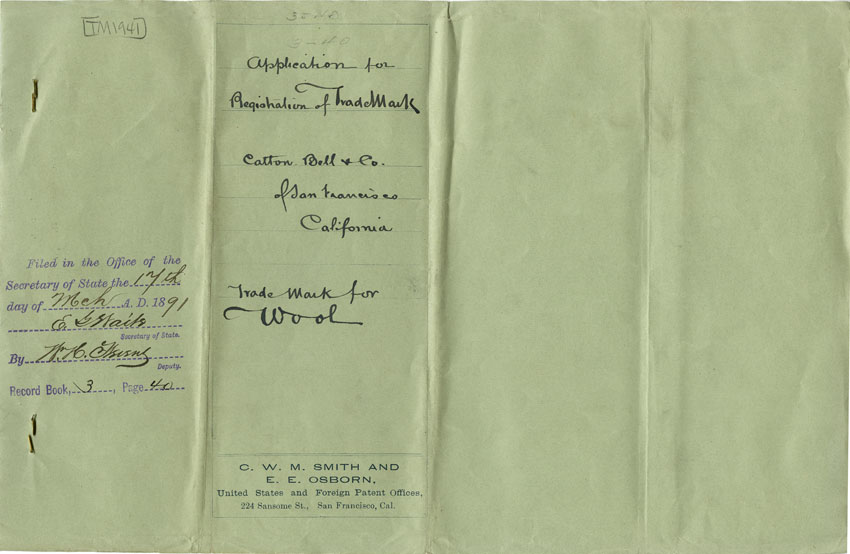 [TM1941]
3-40
3-40
Application for
Registration of Trade Mark
Catton Bell & Co.
of San Francisco
California
Trade Mark for
Wool
Filed in the Office of the
Secretary of State the 17th
day of Mch A. D. 1891
E G Waite
Secretary of State.
By W. H.
Deputy.
Record Book, 3, Page 40
C. W. M. SMITH AND
E. E. OSBORN,
United States and Foreign Patent Offices,
224 Sansome St., San Francisco, Cal.